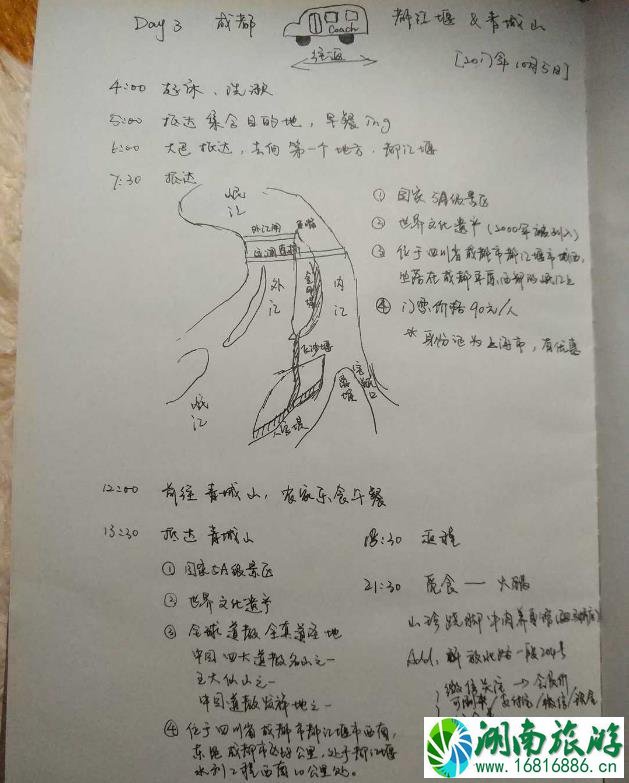 Day 3 成都
Coach
都江堰 & 青城山
往返
[2017年10月5日]
4:00 起床、洗漱
5:00 抵达集合目的地，早餐ing
6:00 大巴抵达，去往第一个地方，都江堰
7:30 抵达
岷江
外江闸
鱼嘴
外江
金刚堤
内江
飞沙堰
人字堤
宝瓶口
离堆
岷江
① 国家5A级景区
② 世界文化遗产(2000年被列入)
③ 位于四川省成都市都江堰市城西，
坐落在成都平原西部的岷江上
④ 门票价格90元/人
* 身份证为上海市，有优惠
12:00 前往青城山，农家乐食午餐
13:30 抵达青城山
① 国家5A级景区
② 世界文化遗产
③ 全球道教全真道圣地
中国四大道教名山之一
五大仙山之一
中国道教发祥地之一
④ 位于四川省成都市都江堰市西南，
东距成都市区68公里，处于都江堰
水利工程西南10公里处。
18:30 返程
21:30 觅食 — 火锅
山珍跷脚牛肉养身馆
Add. 解放北路一段204号
微信关注 → 会员价
可刷卡/支付宝/微信/现金
湖南旅游
www.16816886.cn